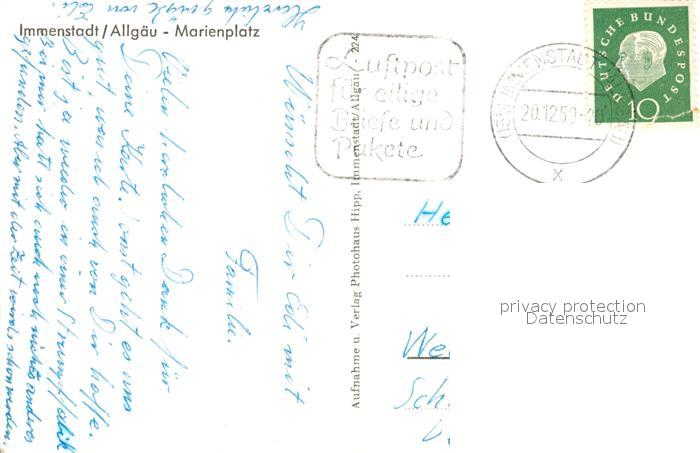 Immenstadt/Allgäu - Marienplatz
Herzliche von Edi.
Vielen herzlichen Dank für
Deine Karte. Sonst geht es uns
gut was ich auch von Dir hoffe.
Bist ja wieder in einer Strumpffabrik
Bei mir hatt sich auch noch nichts anderes
gefunden. Aber mit der Zeit wirds schon werden.
Wünscht Dir Edi mit
Familie.
224
Aufnahme u. Verlag Photohaus Hipp, Immenstadt/Allgäu
Luftpost
für eilige
Briefe und
Pakete
IMMENSTADT
20.12.59
x
DEUTSCHE BUNDESPOST
10
He
We
Sch
privacy protection
Datenschutz